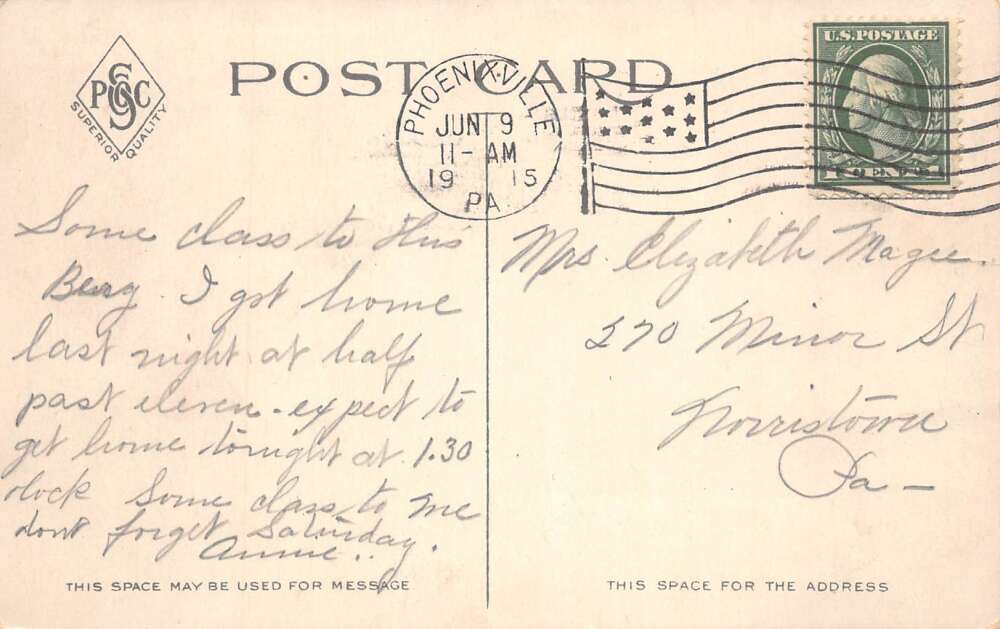 PSCO
SUPERIOR QUALITY
POST CARD
PHOENIXVILLE
JUN 9
11- AM
1915
PA
U.S. POSTAGE
Some class to this
Berg I got home
last night at half
past eleven - expect to
get home tonight at 1.30
clock Some class to me
dont forget Saturday.
Annie..
Mrs Elizabeth Magee.
270 Minor St
Norristown
Pa -
THIS SPACE MAY BE USED FOR MESSAGE
THIS SPACE FOR THE ADDRESS